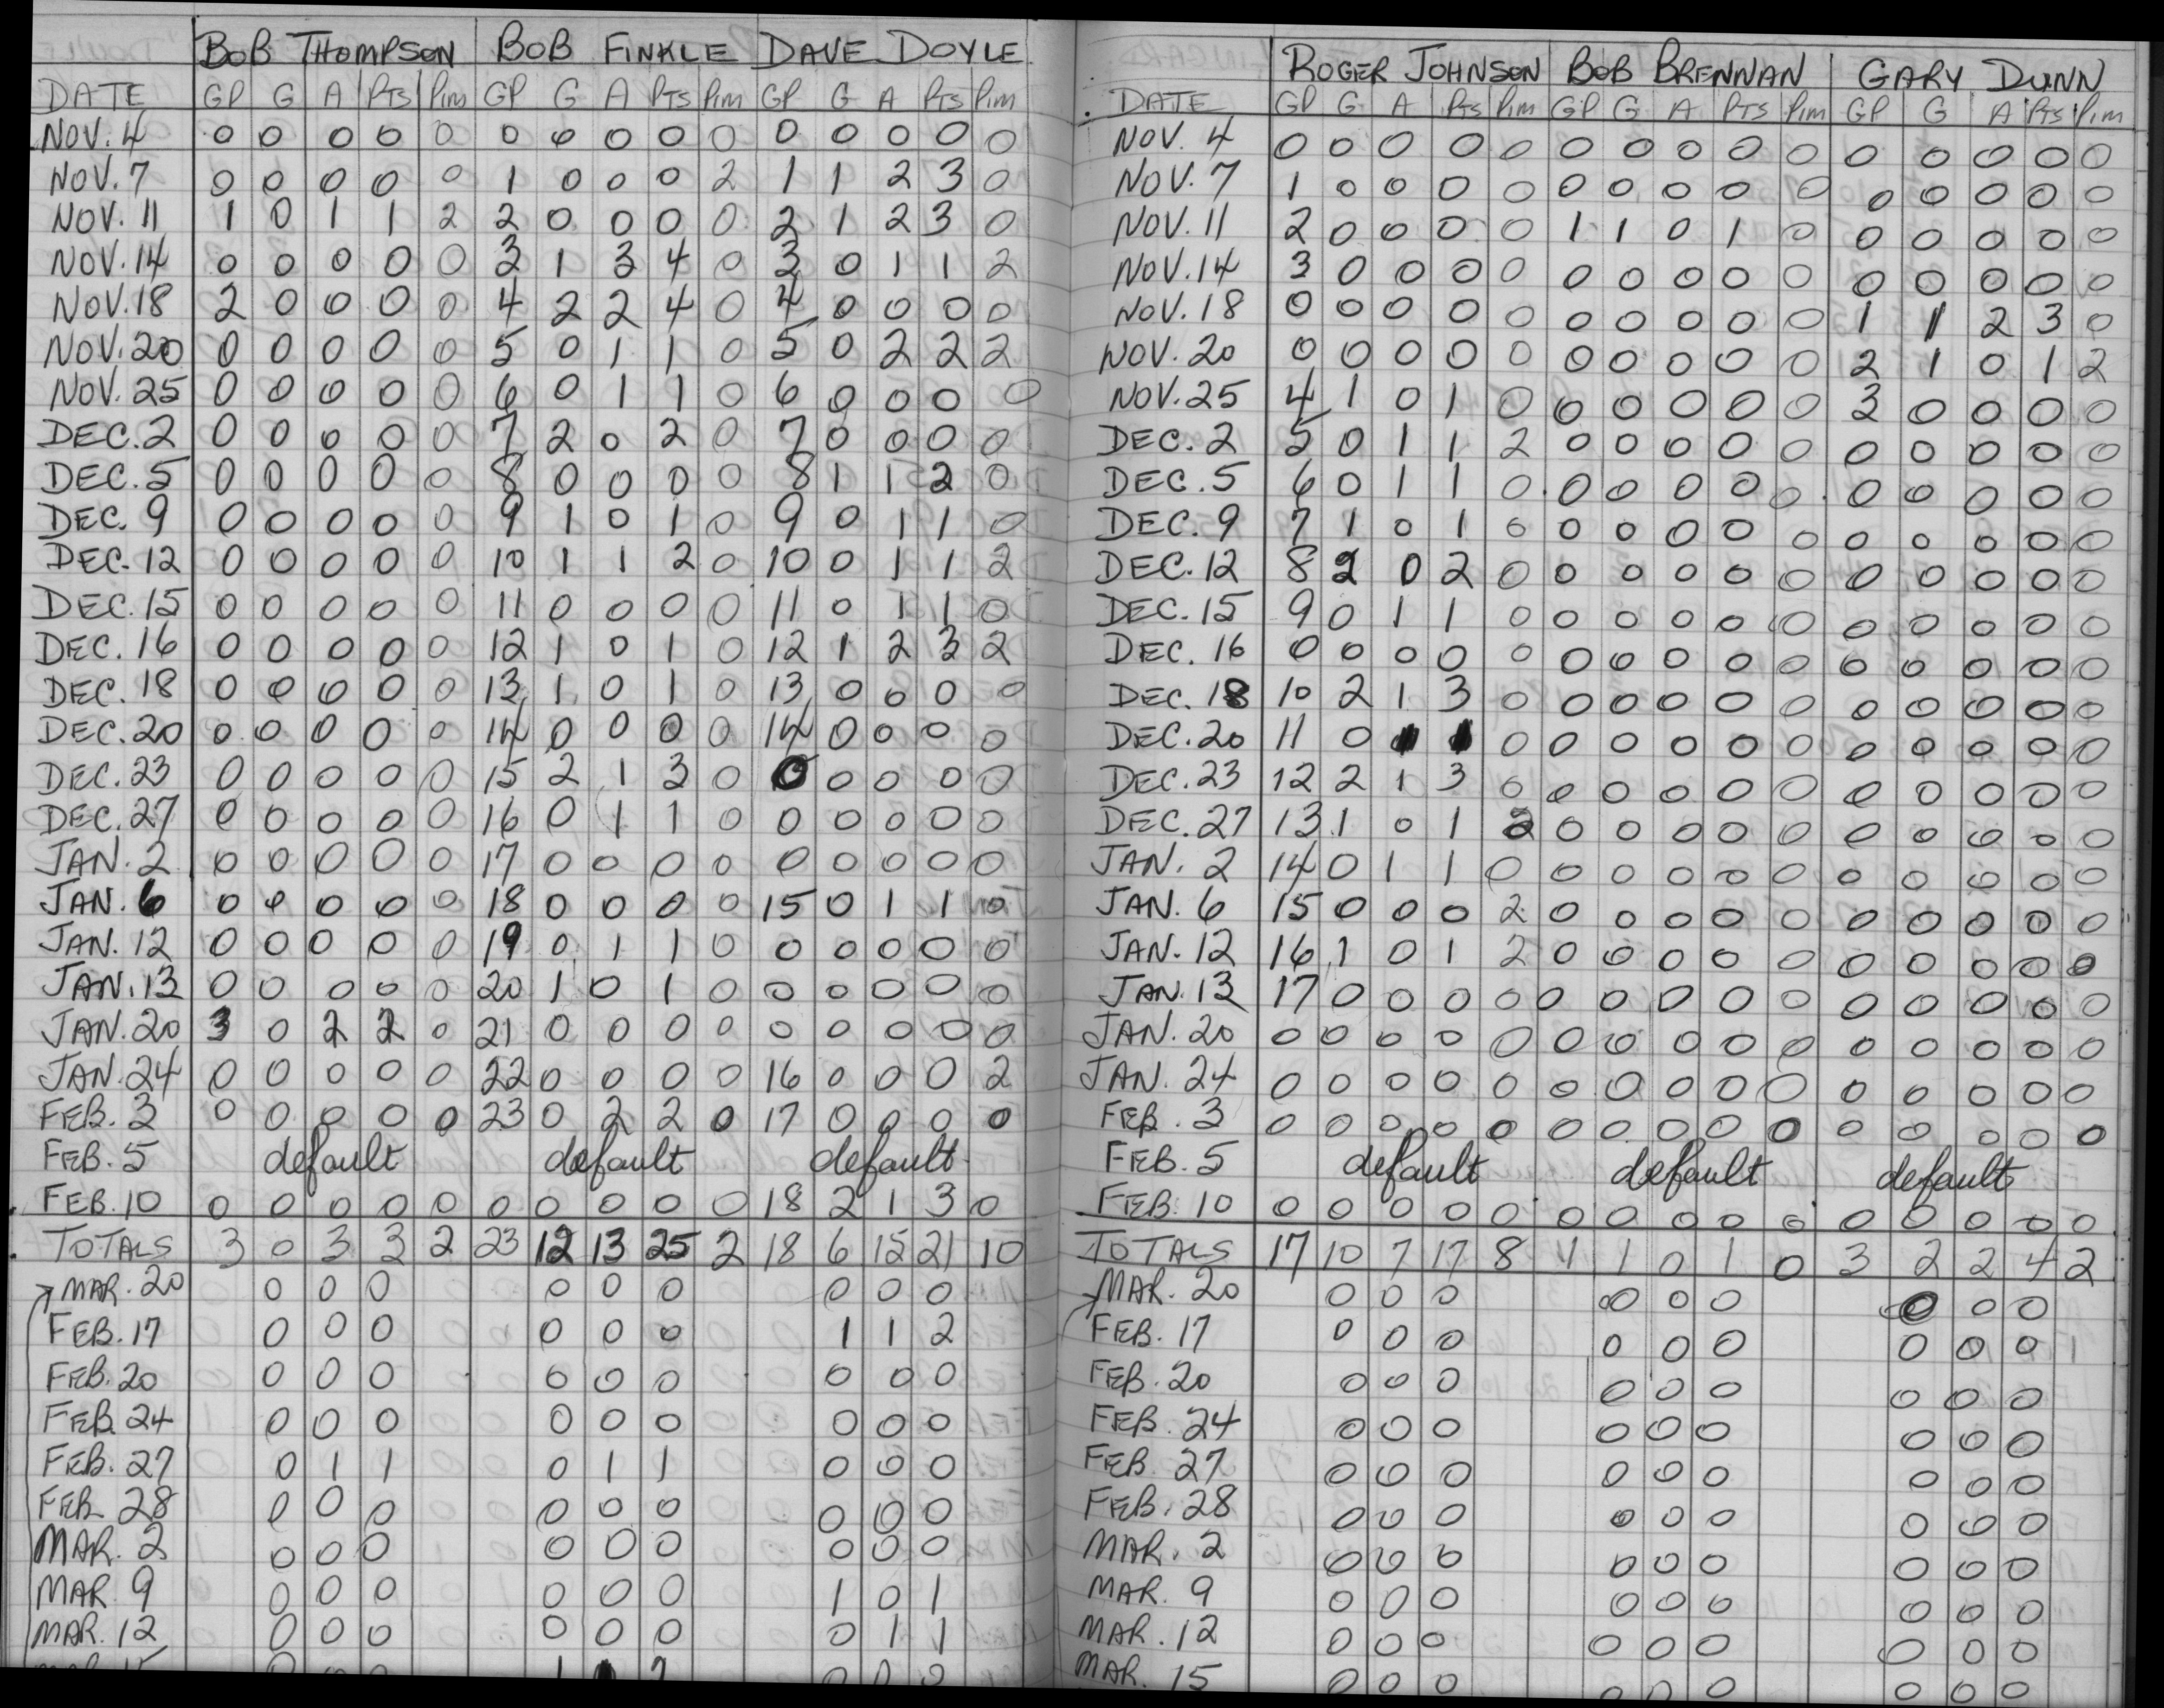 BOB THOMPSON BOB FINKLE DAVE DOYLE
DATE GP G A PTS Pim GP G A PTS Pim GP G A PTS Pim
NOV. 4 0 0 0 0 0 0 0 0 0 0 0 0 0 0 0
NOV. 7 0 0 0 0 0 1 0 0 0 2 1 1 2 3 0
NOV. 11 1 0 1 1 2 2 0 0 0 0 2 1 2 3 0
NOV. 14 0 0 0 0 0 3 1 3 4 0 3 0 1 1 2
NOV. 18 2 0 0 0 0 4 2 2 4 0 4 0 0 0 0
NOV. 20 0 0 0 0 0 5 0 1 1 0 5 0 2 2 2
NOV. 25 0 0 0 0 0 6 0 1 1 0 6 0 0 0 0
DEC. 2 0 0 0 0 0 7 2 0 2 0 7 0 0 0 0
DEC. 5 0 0 0 0 0 8 0 0 0 0 8 1 1 2 0
DEC. 9 0 0 0 0 0 9 1 0 1 0 9 0 1 1 0
DEC. 12 0 0 0 0 0 10 1 1 2 0 10 0 1 1 2
DEC. 15 0 0 0 0 0 11 0 0 0 0 11 0 1 1 0
DEC. 16 0 0 0 0 0 12 1 0 1 0 12 1 2 3 2
DEC. 18 0 0 0 0 0 13 1 0 1 0 13 0 0 0 0
DEC. 20 0 0 0 0 0 14 0 0 0 0 14 0 0 0 0
DEC. 23 0 0 0 0 0 15 2 1 3 0 0 0 0 0 0
DEC. 27 0 0 0 0 0 16 0 1 1 0 0 0 0 0 0
JAN. 2 0 0 0 0 0 17 0 0 0 0 0 0 0 0 0
JAN. 6 0 0 0 0 0 18 0 0 0 0 15 0 1 1 0
JAN. 12 0 0 0 0 0 19 0 1 1 0 0 0 0 0 0
JAN. 13 0 0 0 0 0 20 1 0 1 0 0 0 0 0 0
JAN. 20 3 0 2 2 0 21 0 0 0 0 0 0 0 0 0
JAN. 24 0 0 0 0 0 22 0 0 0 0 16 0 0 0 2
FEB. 3 0 0 0 0 0 23 0 2 2 0 17 0 0 0 0
FEB. 5 default default default
FEB. 10 0 0 0 0 0 0 0 0 0 0 18 2 1 3 0
TOTALS 3 0 3 3 2 23 12 13 25 2 18 6 15 21 10
MAR. 20 0 0 0 0 0 0 0 0 0
FEB. 17 0 0 0 0 0 0 1 1 2
FEB. 20 0 0 0 0 0 0 0 0 0
FEB. 24 0 0 0 0 0 0 0 0 0
FEB. 27 0 1 1 0 1 1 0 0 0
FEB. 28 0 0 0 0 0 0 0 0 0
MAR. 2 0 0 0 0 0 0 0 0 0
MAR. 9 0 0 0 0 0 0 1 0 1
MAR. 12 0 0 0 0 0 0 0 1 1
ROGER JOHNSON BOB BRENNAN GARY DUNN
DATE GP G A PTS Pim GP G A PTS Pim GP G A PTS Pim
NOV. 4 0 0 0 0 0 0 0 0 0 0 0 0 0 0 0
NOV. 7 1 0 0 0 0 0 0 0 0 0 0 0 0 0 0
NOV. 11 2 0 0 0 0 1 1 0 1 0 0 0 0 0 0
NOV. 14 3 0 0 0 0 0 0 0 0 0 0 0 0 0 0
NOV. 18 0 0 0 0 0 0 0 0 0 0 1 1 2 3 0
NOV. 20 0 0 0 0 0 0 0 0 0 0 2 1 0 1 2
NOV. 25 4 1 0 1 0 0 0 0 0 0 3 0 0 0 0
DEC. 2 5 0 1 1 2 0 0 0 0 0 0 0 0 0 0
DEC. 5 6 0 1 1 0 0 0 0 0 0 0 0 0 0 0
DEC. 9 7 1 0 1 0 0 0 0 0 0 0 0 0 0 0
DEC. 12 8 2 0 2 0 0 0 0 0 0 0 0 0 0 0
DEC. 15 9 0 1 1 0 0 0 0 0 0 0 0 0 0 0
DEC. 16 0 0 0 0 0 0 0 0 0 0 0 0 0 0 0
DEC. 18 10 2 1 3 0 0 0 0 0 0 0 0 0 0 0
DEC. 20 11 0 1 1 0 0 0 0 0 0 0 0 0 0 0
DEC. 23 12 2 1 3 0 0 0 0 0 0 0 0 0 0 0
DEC. 27 13 1 0 1 2 0 0 0 0 0 0 0 0 0 0
JAN. 2 14 0 1 1 0 0 0 0 0 0 0 0 0 0 0
JAN. 6 15 0 0 0 2 0 0 0 0 0 0 0 0 0 0
JAN. 12 16 1 0 1 2 0 0 0 0 0 0 0 0 0 0
JAN. 13 17 0 0 0 0 0 0 0 0 0 0 0 0 0 0
JAN. 20 0 0 0 0 0 0 0 0 0 0 0 0 0 0 0
JAN. 24 0 0 0 0 0 0 0 0 0 0 0 0 0 0 0
FEB. 3 0 0 0 0 0 0 0 0 0 0 0 0 0 0 0
FEB. 5 default default default
FEB. 10 0 0 0 0 0 0 0 0 0 0 0 0 0 0 0
TOTALS 17 10 7 17 8 1 1 0 1 0 3 2 2 4 2
MAR. 20 0 0 0 0 0 0 0 0 0
FEB. 17 0 0 0 0 0 0 0 0 0
FEB. 20 0 0 0 0 0 0 0 0 0
FEB. 24 0 0 0 0 0 0 0 0 0
FEB. 27 0 0 0 0 0 0 0 0 0
FEB. 28 0 0 0 0 0 0 0 0 0
MAR. 2 0 0 0 0 0 0 0 0 0
MAR. 9 0 0 0 0 0 0 0 0 0
MAR. 12 0 0 0 0 0 0 0 0 0
MAR. 15 0 0 0 0 0 0 0 0 0